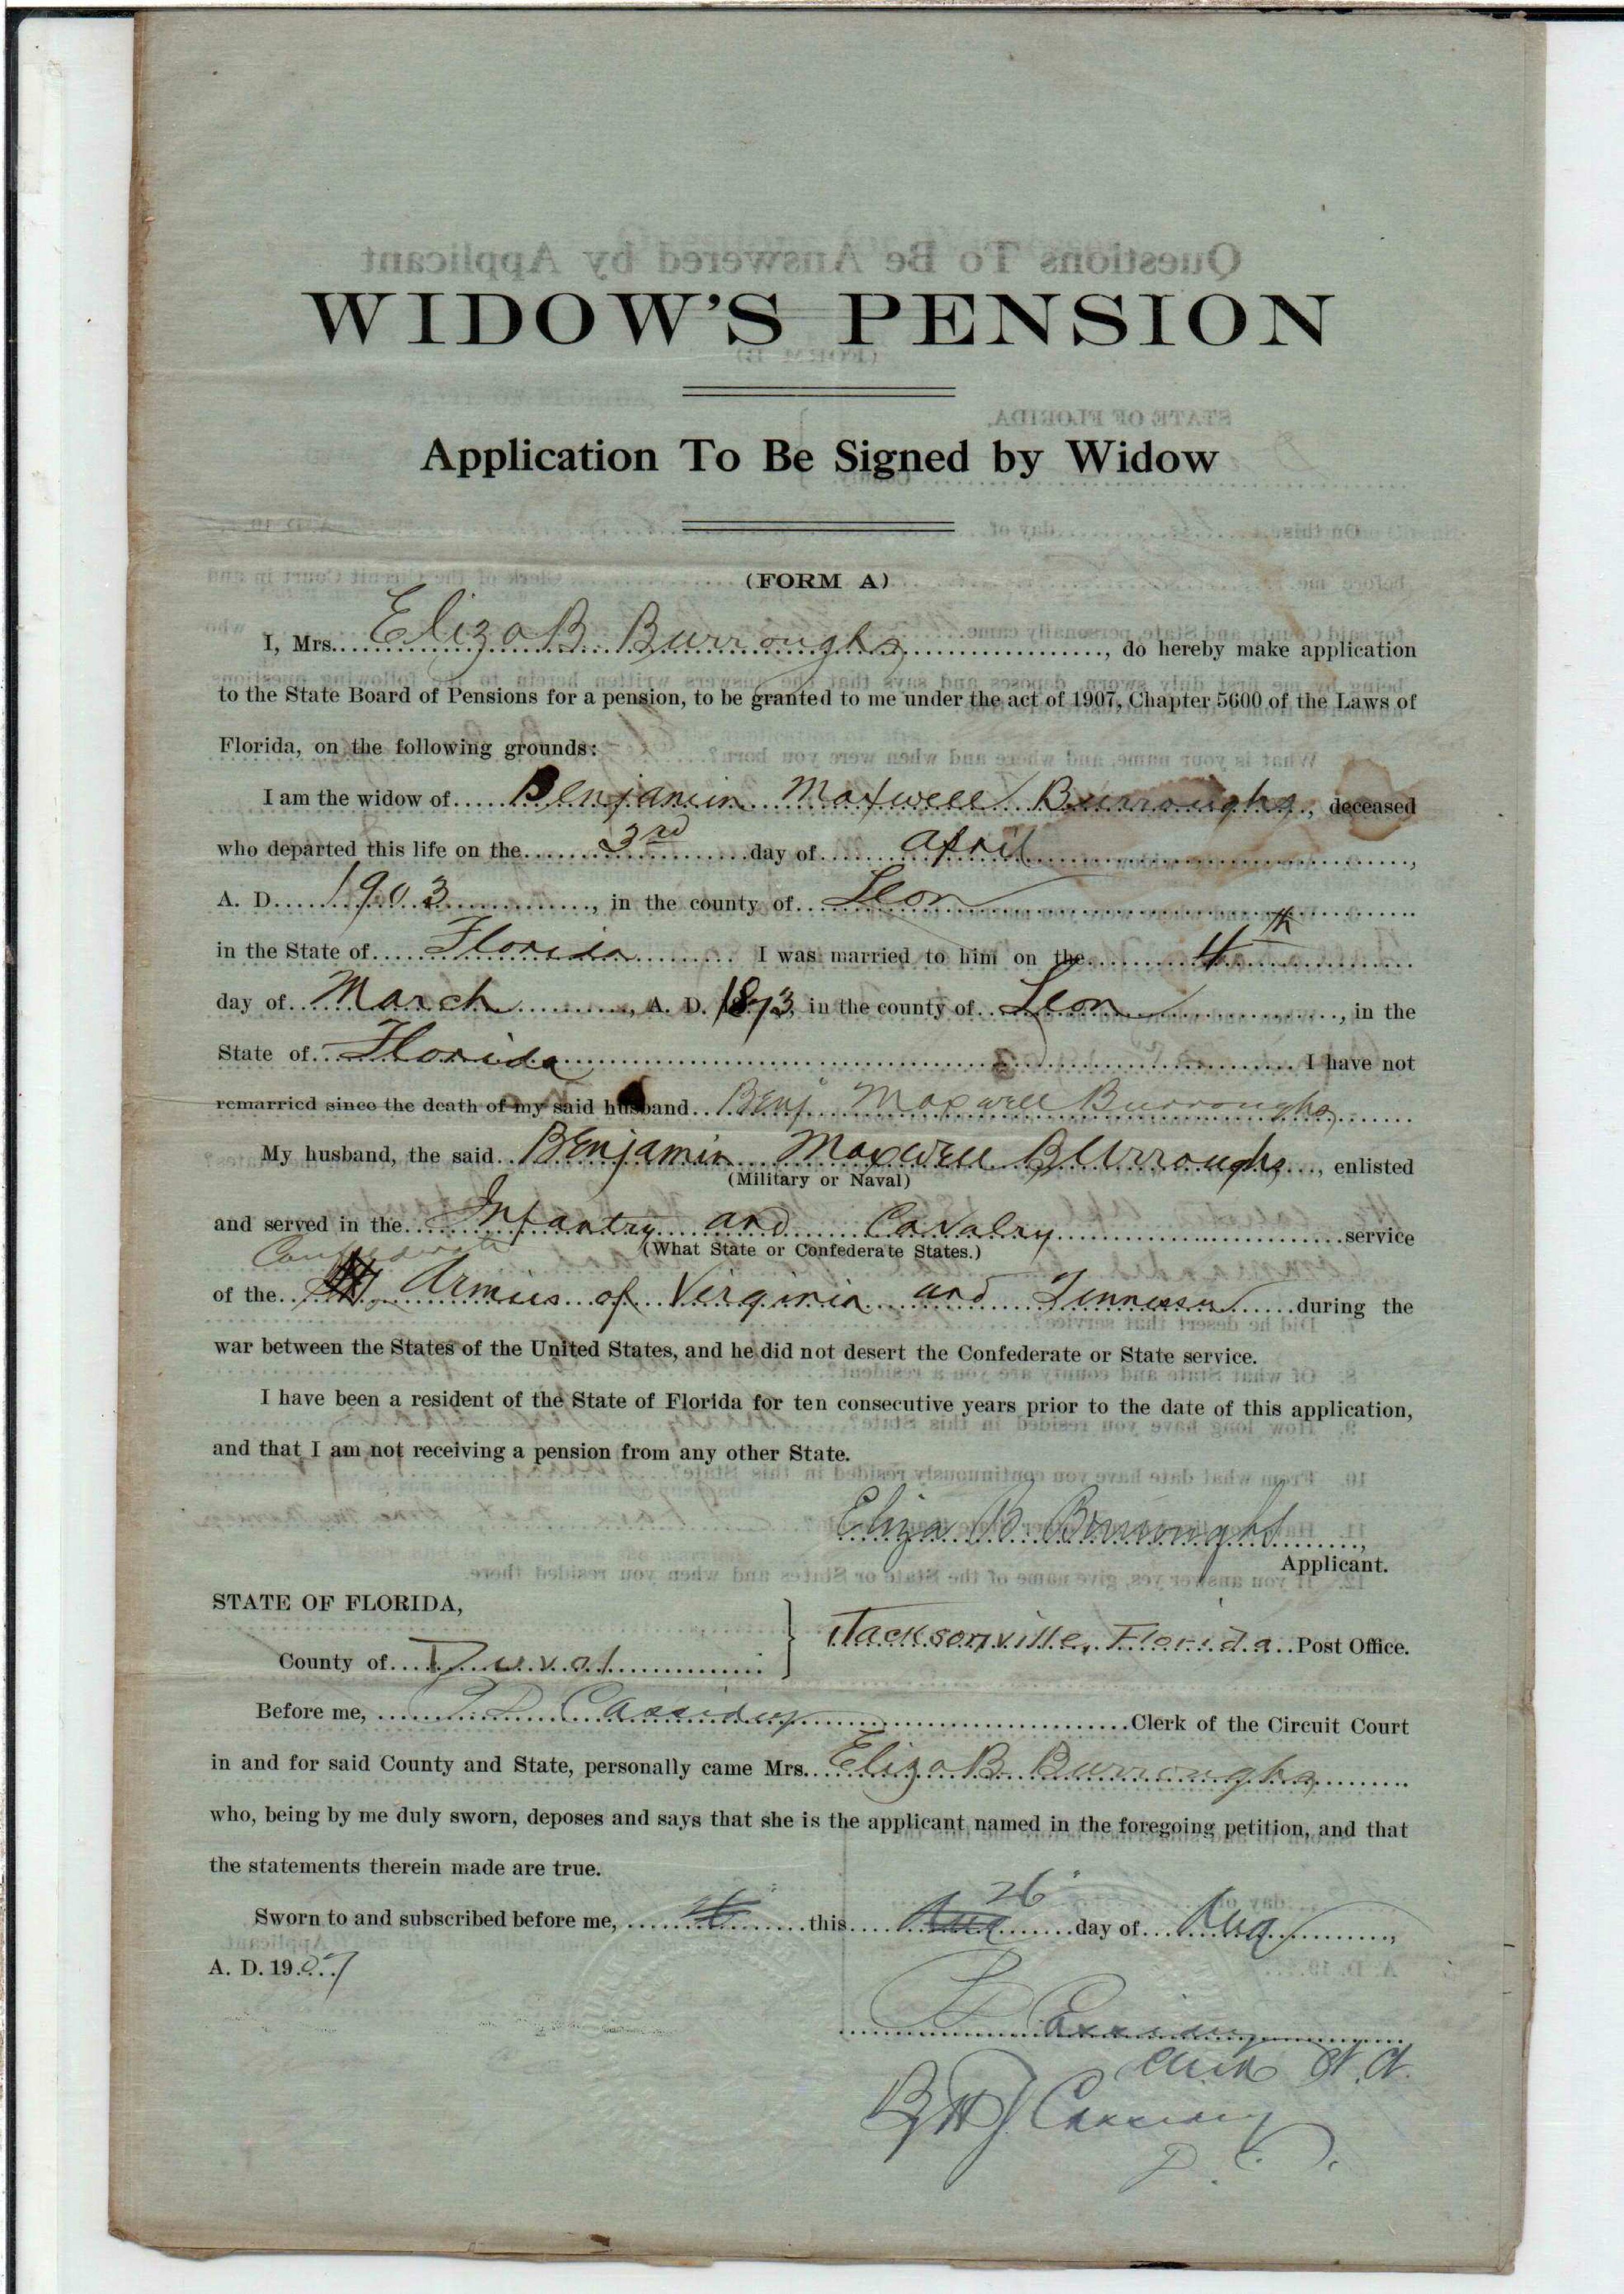 WIDOW'S PENSION
Application To Be Signed by Widow
(FORM A)
I, Mrs. Eliza B. Burroughs, do hereby make application
to the State Board of Pensions for a pension, to be granted to me under the act of 1907, Chapter 5600 of the Laws of
Florida, on the following grounds:
I am the widow of Benjamin Maxwell Burroughs, deceased
who departed this life on the 3rd day of April,
A. D. 1903, in the county of Leon
in the State of Florida I was married to him on the 4th
day of March, A. D. 1873, in the county of Leon, in the
State of Florida I have not
remarried since the death of my said husband Benj. Maxwell Burroughs
My husband, the said Benjamin Maxwell Burroughs, enlisted
(Military or Naval)
and served in the Infantry and Cavalry service
(What State or Confederate States.)
Confederate
of the Armies of Virginia and Tennessee during the
war between the States of the United States, and he did not desert the Confederate or State service.
I have been a resident of the State of Florida for ten consecutive years prior to the date of this application,
and that I am not receiving a pension from any other State.
Eliza B. Burroughs,
Applicant.
STATE OF FLORIDA,
County of Duval
Jacksonville, Florida Post Office.
Before me, P D Cassidey Clerk of the Circuit Court
in and for said County and State, personally came Mrs. Eliza B. Burroughs
who, being by me duly sworn, deposes and says that she is the applicant named in the foregoing petition, and that
the statements therein made are true.
26
Sworn to and subscribed before me, this Aug day of Aug,
A. D. 1907
P D Cassidey
Clerk
By Cassidey
D. C.